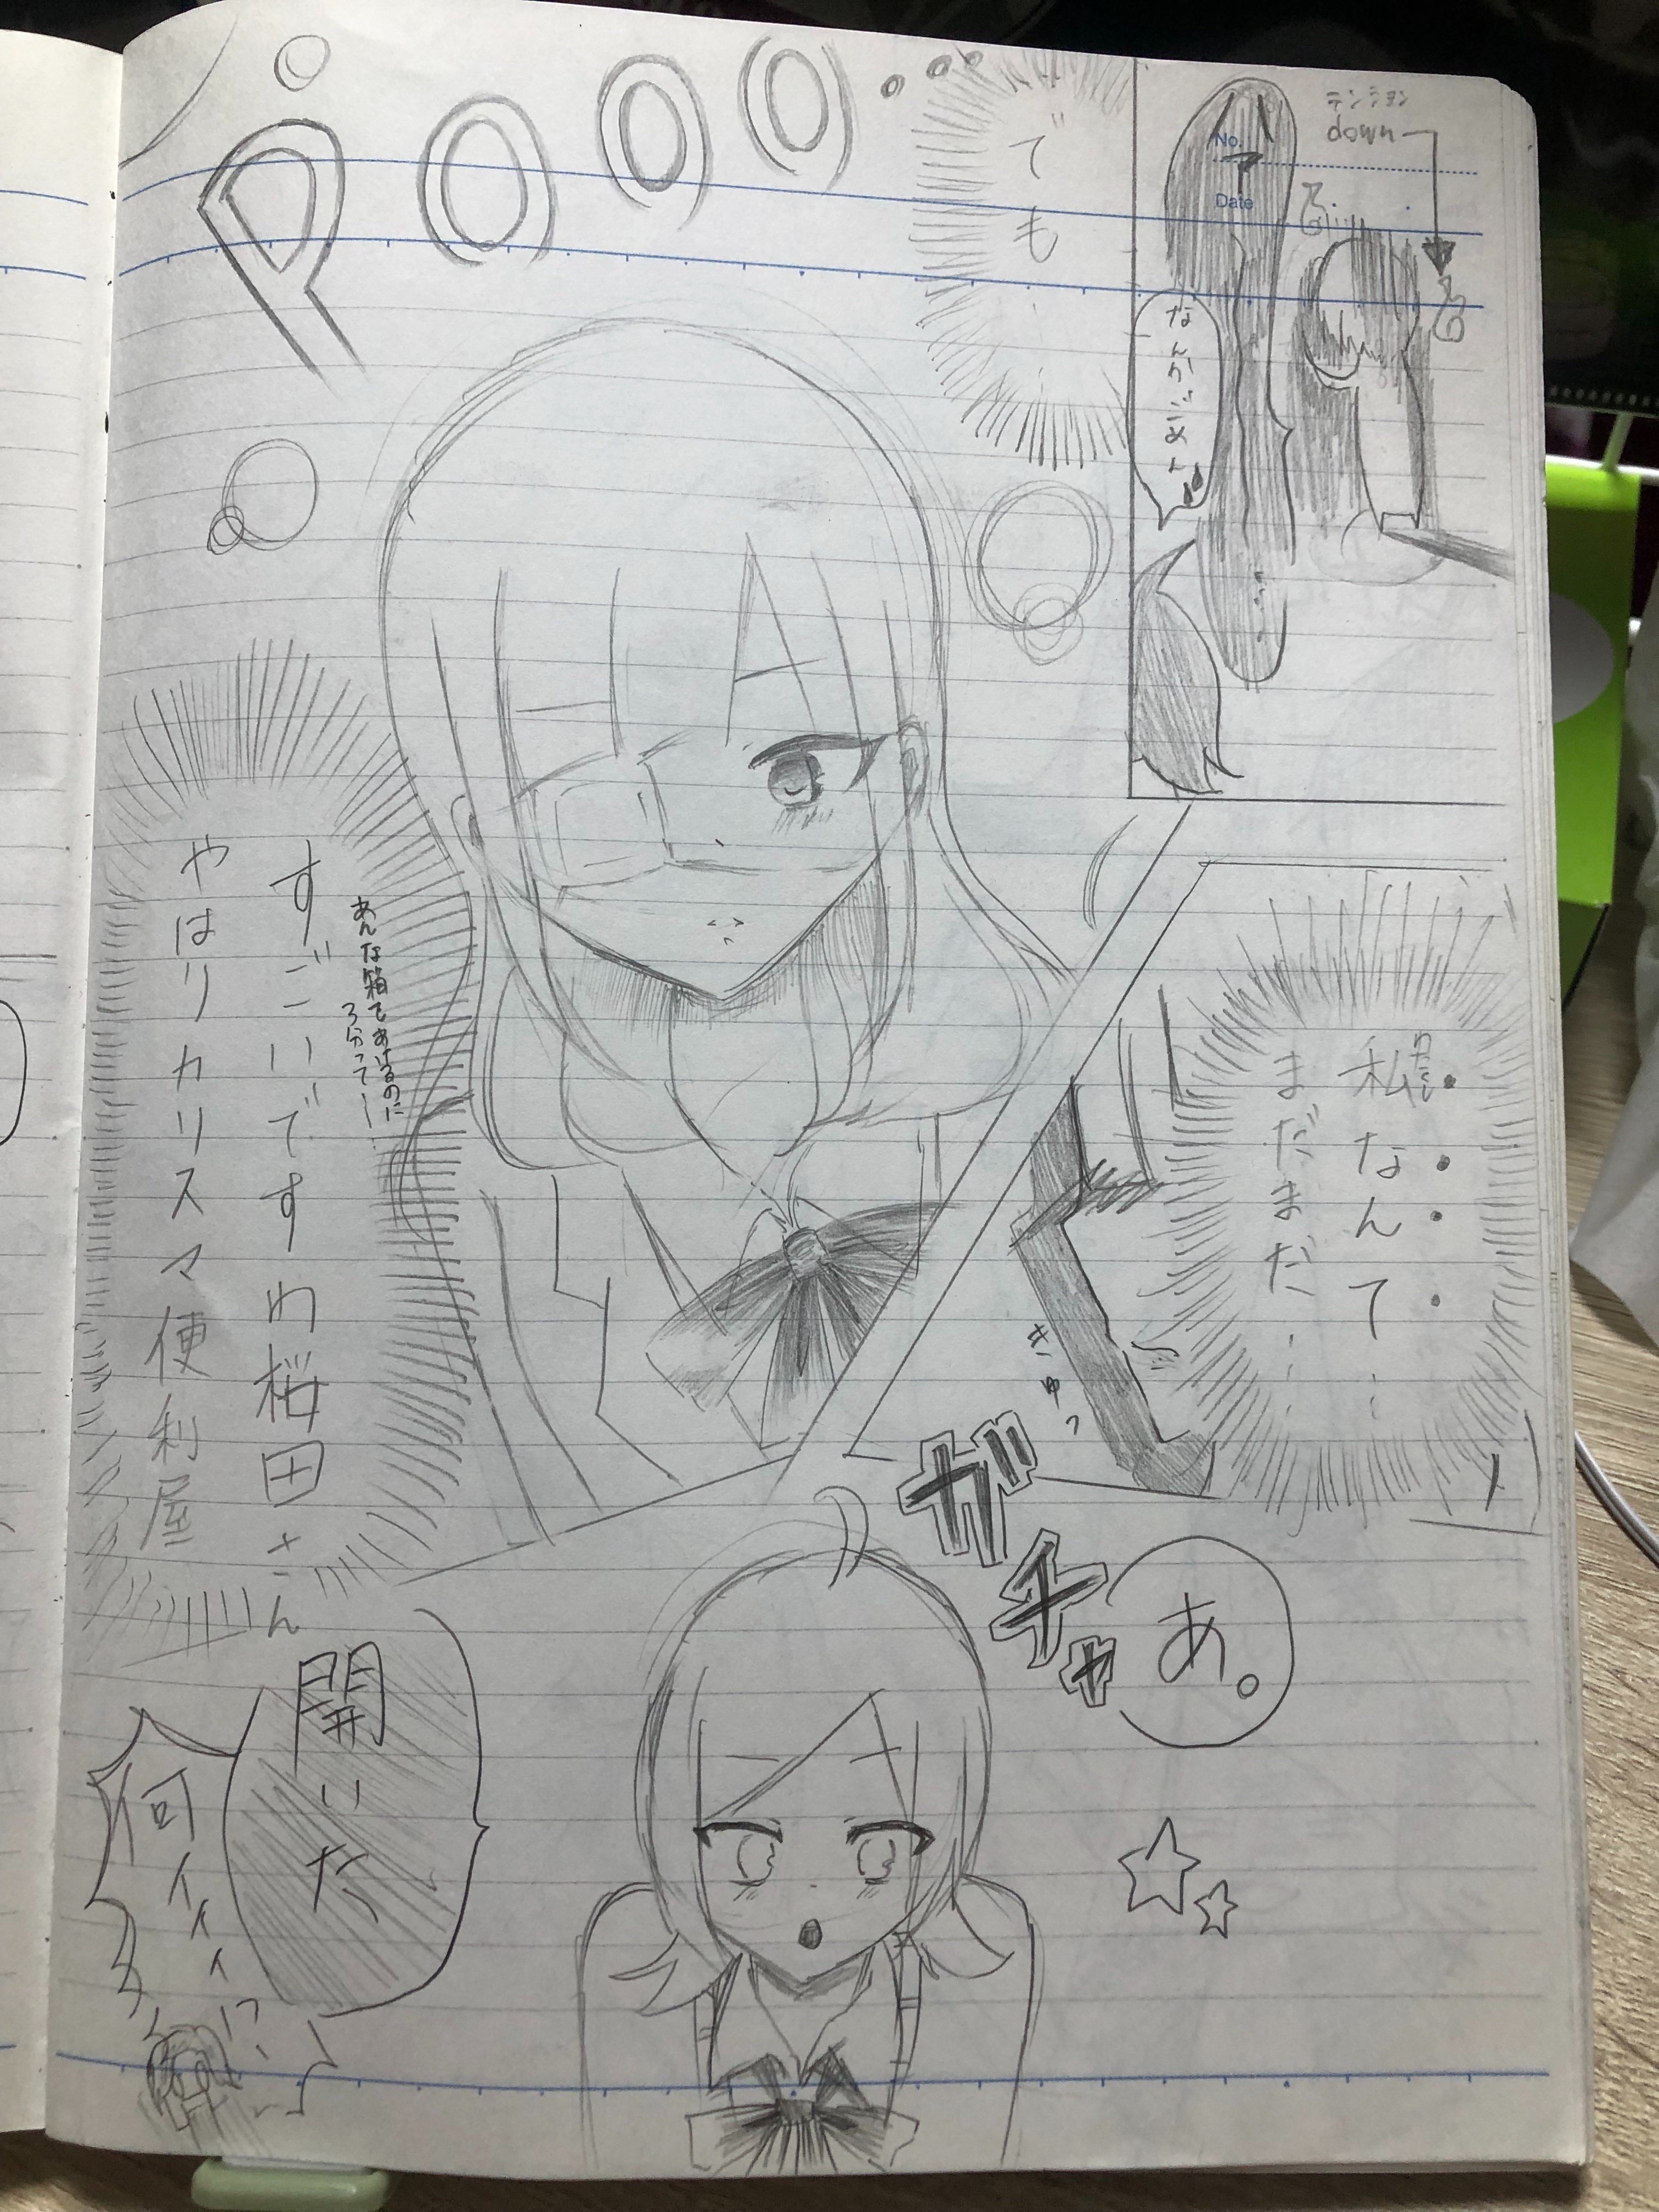 テンション
down
No.
Date
なんかごめん
でも…
Pooo...
私なんて…
わたし
まだまだ…
きゅっ
あんな箱であけるのに
3分って…
すごいですわ桜田さん
やはりカリスマ便利屋
ガチャ
あ。
開いた
何ィィィ!?